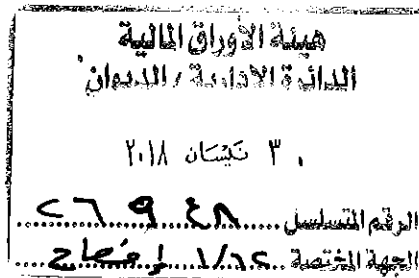 هيئة الأوراق المالية
الدائرة الادارية / الديوان
٣٠ نيسان ٢٠١٨
الرقم المتسلسل ٢٦٩٤٨
الجهة المختصة ١/٦٢ إفصاح